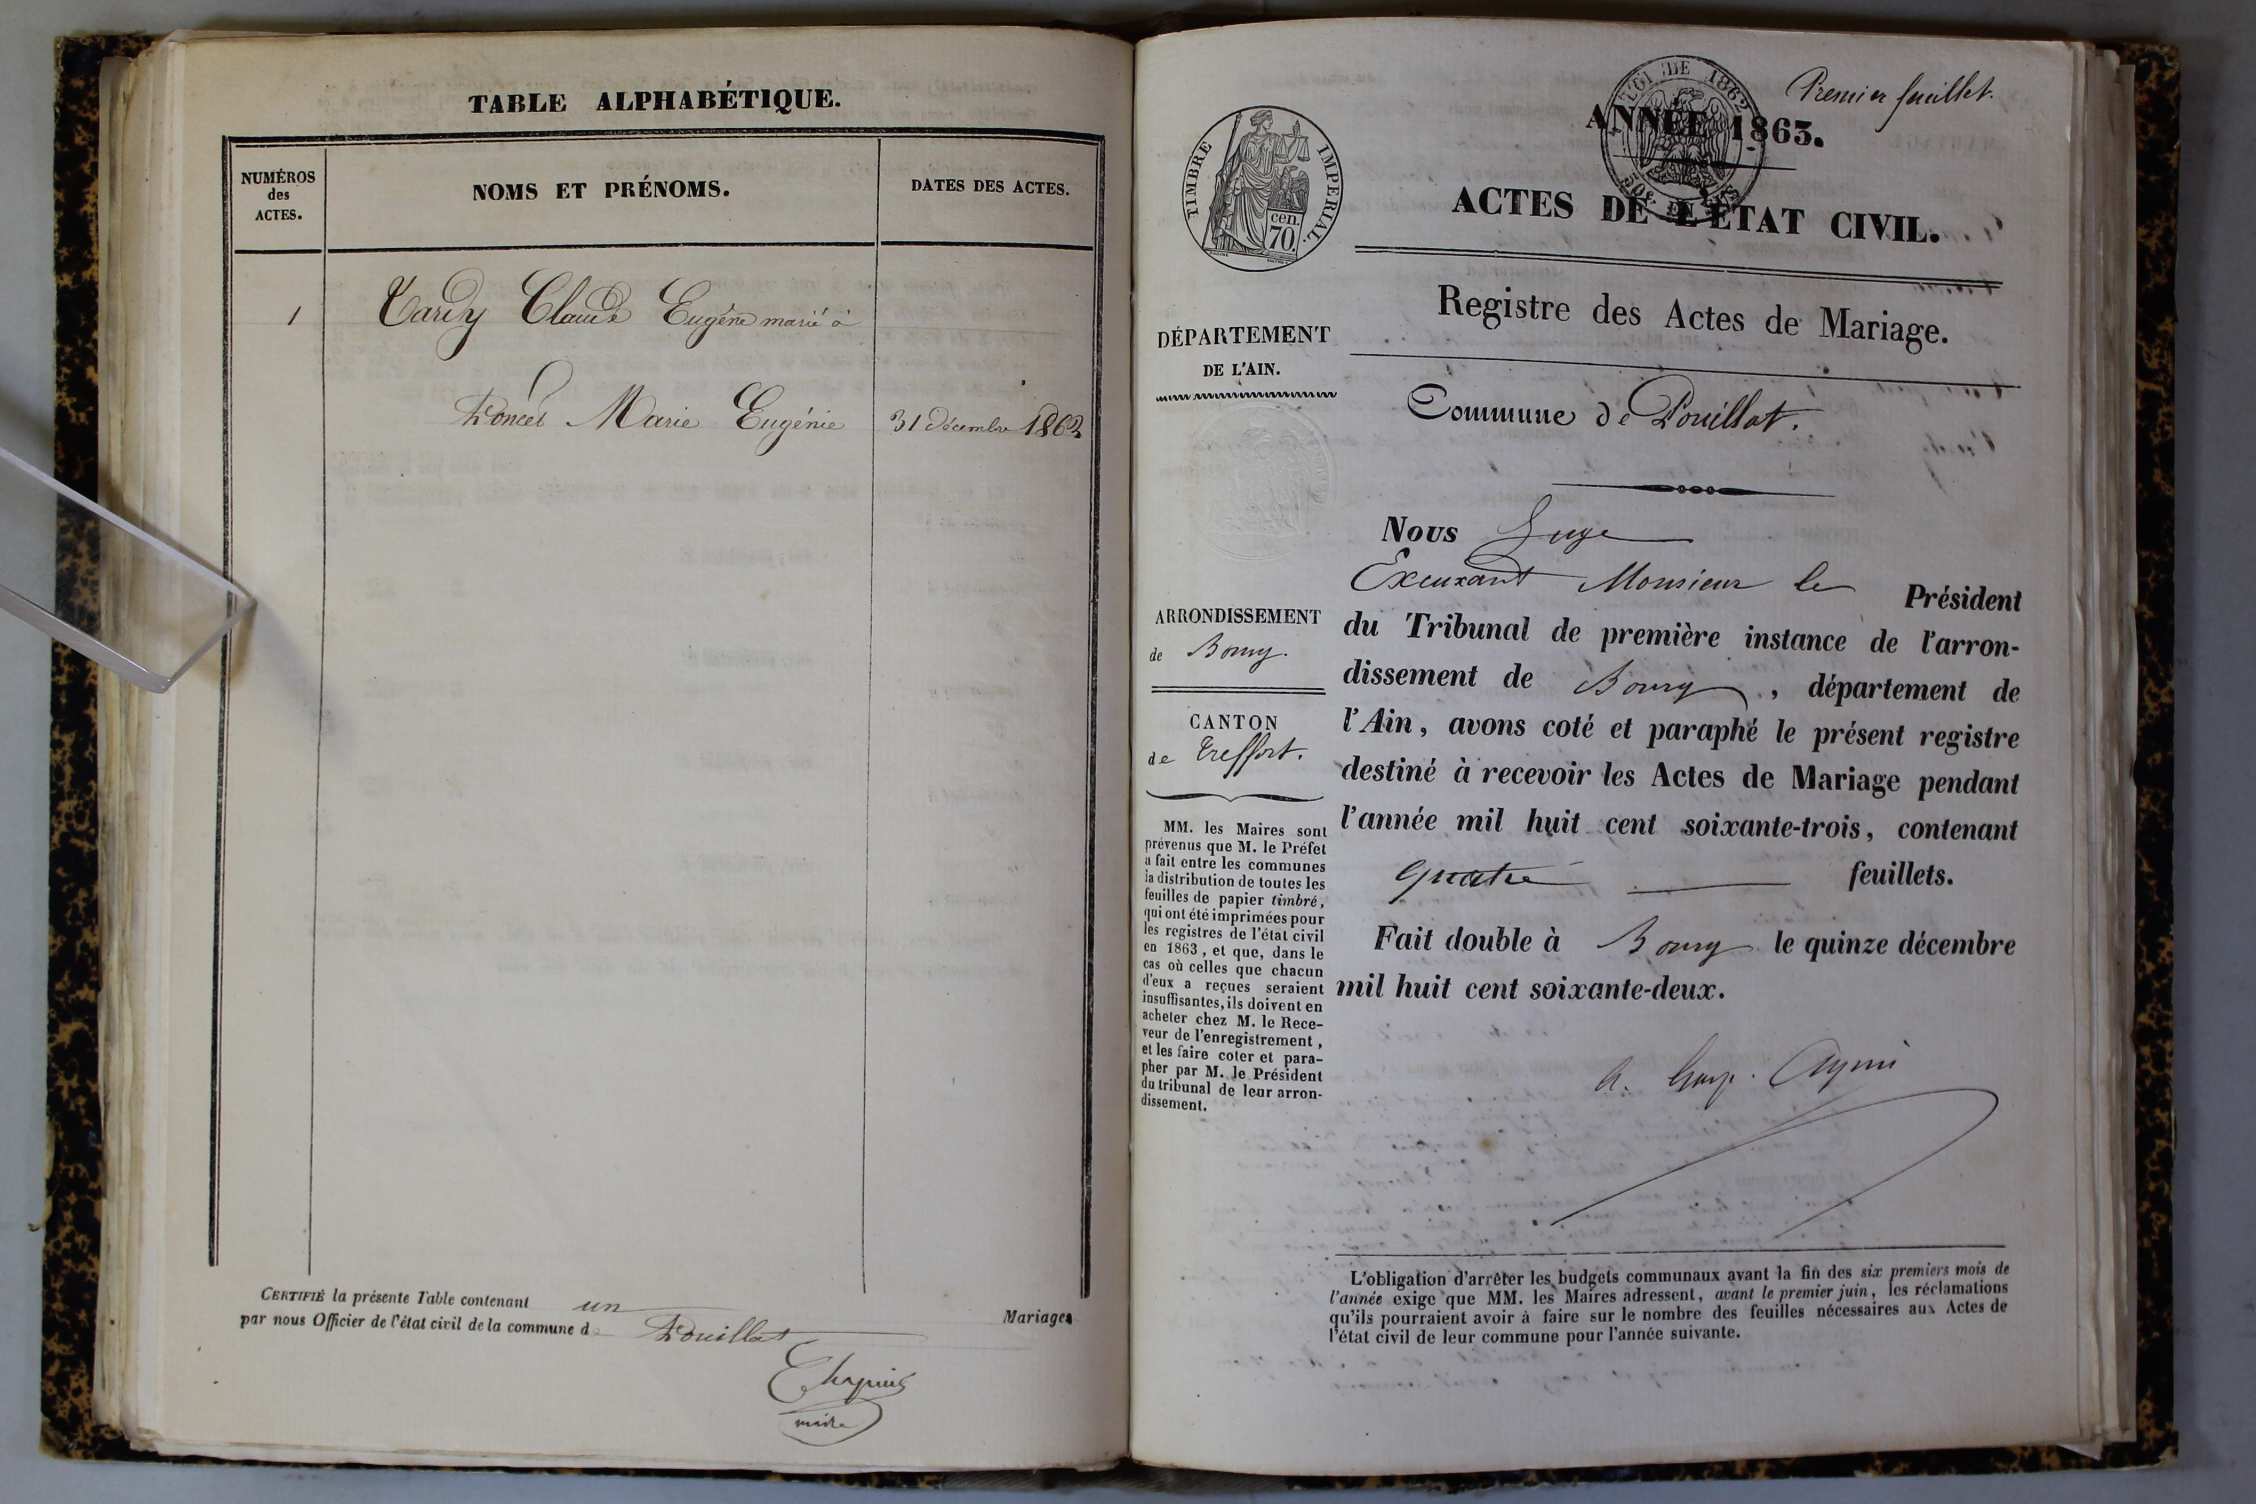 TABLE ALPHABÉTIQUE.
NUMÉROS
des
ACTES.
NOMS ET PRÉNOMS.
DATES DES ACTES.
1 Tardy Claude Eugène marié à
Poncet Marie Eugénie 31 décembre 1862
CERTIFIÉ la présente Table contenant un Mariages
par nous Officier de l'état civil de la commune de Pouillat
Chapuis
maire
Premier feuillet.
ANNÉE 1863.
ACTES DE L'ÉTAT CIVIL.
TIMBRE IMPÉRIAL.
cen.
70.
Registre des Actes de Mariage.
DÉPARTEMENT
DE L'AIN.
Commune de Pouillat.
ARRONDISSEMENT
de Bourg.
CANTON
de Treffort.
MM. les Maires sont
prévenus que M. le Préfet
a fait entre les communes
la distribution de toutes les
feuilles de papier timbré,
qui ont été imprimées pour
les registres de l'état civil
en 1863, et que, dans le
cas où celles que chacun
d'eux a reçues seraient
insuffisantes, ils doivent en
acheter chez M. le Rece-
veur de l'enregistrement,
et les faire coter et para-
pher par M. le Président
du tribunal de leur arron-
dissement.
Nous Juge
Exerçant Monsieur le Président
du Tribunal de première instance de l'arron-
dissement de Bourg, département de
l'Ain, avons coté et paraphé le présent registre
destiné à recevoir les Actes de Mariage pendant
l'année mil huit cent soixante-trois, contenant
quatre feuillets.
Fait double à Bourg le quinze décembre
mil huit cent soixante-deux.
L'obligation d'arrêter les budgets communaux avant la fin des six premiers mois de
l'année exige que MM. les Maires adressent, avant le premier juin, les réclamations
qu'ils pourraient avoir à faire sur le nombre des feuilles nécessaires aux Actes de
l'état civil de leur commune pour l'année suivante.